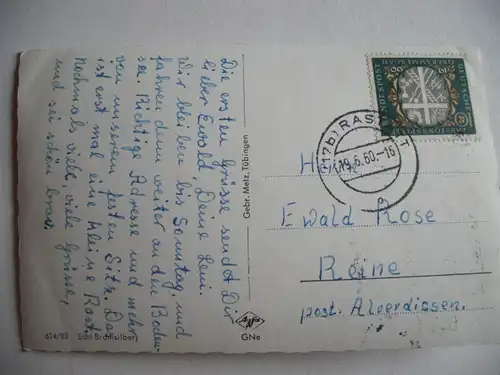 Die ersten Grüsse sendet Dir
lieber Ewald, Deine Leni.
Wir bleiben bis Sonntag, und
fahren dann weiter an den Boden-
see. Richtige Adresse und mehr
von unserem festen Sitz. Das
ist erst mal eine kleine Rast.
Nochmals viele, viele Grüsse,
und sei schön brav.
614/83 Echt Bromsilber
Gebr. Metz, Tübingen
Agfa
GNe
DEUTSCHE
BUNDESPOST
OBERAMMERGAU
PASSIONSSPIELE
(17b) RAST
19.5.60.-16
a
Herrn
Ewald Rose
Reine
post. Alverdissen.